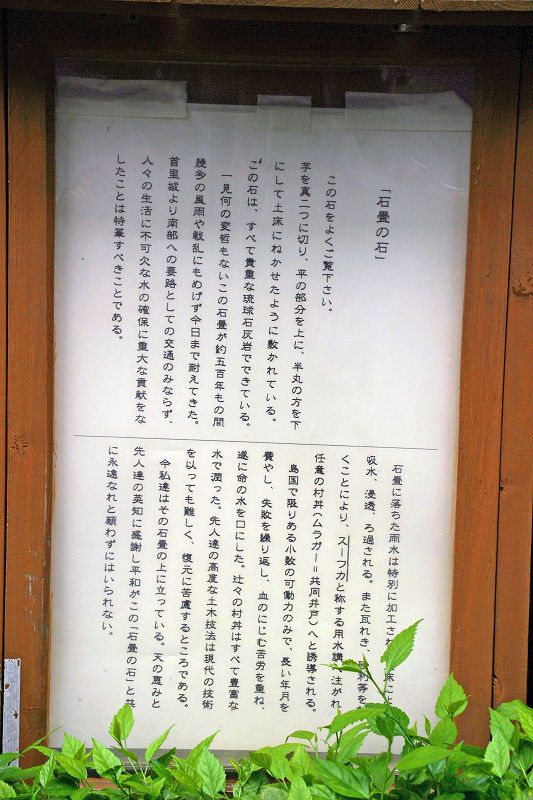 「石畳の石」
この石をよくご覧下さい。
芋を真二つに切り、平の部分を上に、半丸の方を下
にして土床にねかせたように敷かれている。
この石は、すべて貴重な琉球石灰岩でできている。
一見何の変哲もないこの石畳が約五百年もの間
幾多の風雨や戦乱にもめげず今日まで耐えてきた。
首里城より南部への要路としての交通のみならず、
人々の生活に不可欠な水の確保に重大な貢献をな
したことは特筆すべきことである。
石畳に落ちた雨水は特別に加工され
吸水、浸透、ろ過される。また瓦れき、砂利等を
くことにより、スーフカと称する用水溝
任意の村丼(ムラガー=共同井戸)へと誘導される。
島国で限りある小数の可動力のみで、長い年月を
費やし、失敗を繰り返し、血のにじむ苦労を重ね、
遂に命の水を口にした。辻々の村丼はすべて豊富な
水で潤った。先人達の高度な土木技法は現代の技術
を以っても難しく、復元に苦慮するところである。
今私達はその石畳の上に立っている。天の恵みと
先人達の英知に感謝し平和がこの「石畳の石」と共
に永遠なれと願わずにはいられない。